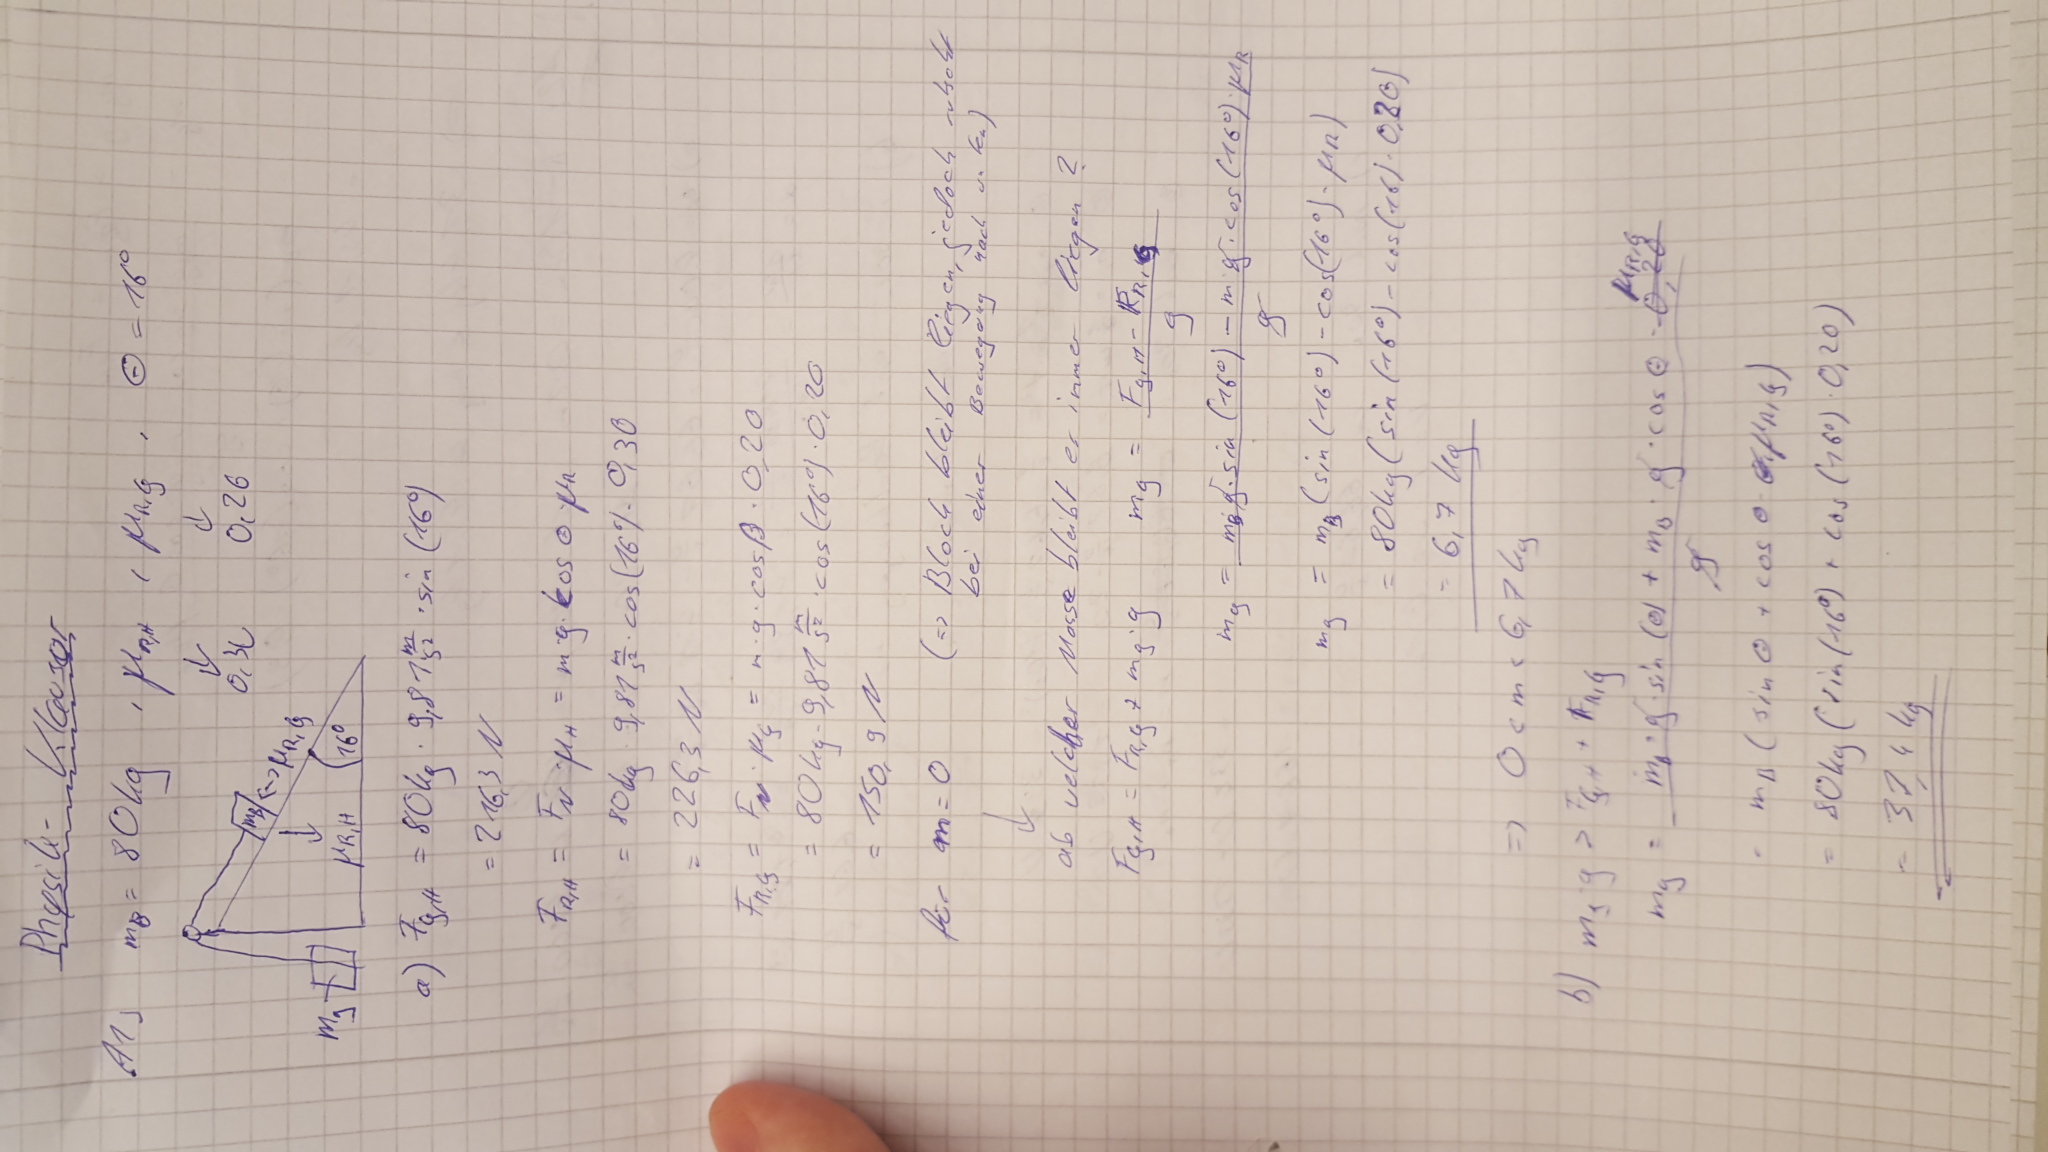 Physik- Klausur
A1) m_B = 80kg , μ_R,H , μ_R,g , Θ = 16°
↓ ↓
0,30 0,20
m_B ↔ μ_R,g
m_g
μ_R,H 16°
a) F_g,H = 80kg · 9,81 m/s² · sin (16°)
= 216,3 N
F_R,H = F_N · μ_H = m·g·cos Θ · μ_R
= 80kg · 9,81 m/s² · cos(16°) · 0,30
= 226,3 N
F_R,g = F_N · μ_g = m·g·cosβ · 0,20
= 80kg · 9,81 m/s² · cos(16°) · 0,20
= 150,9 N
für m = 0 (=> Block bleibt liegen, jedoch rutscht
bei einer Bewegung nach unten)
↓
ab welcher Masse bleibt er immer liegen ?
F_g,H = F_R,g + m_g·g m_g = (F_g,H - F_R,g) / g
m_g = (m_B·g·sin (16°) - m·g·cos(16°)·μ_R) / g
m_g = m_B (sin (16°) - cos(16°) · μ_R)
= 80kg ( sin (16°) - cos(16) · 0,20)
= 6,7 kg
=> 0 < m < 6,7 kg
b) m_g·g > F_g,H + F_R,g
m_g = (m_B · g · sin (Θ) + m_B · g · cos Θ · μ_R,g) / g
= m_B ( sin Θ + cos Θ · μ_R,g)
= 80kg ( sin(16°) + cos (16°) · 0,20)
= 37,4 kg